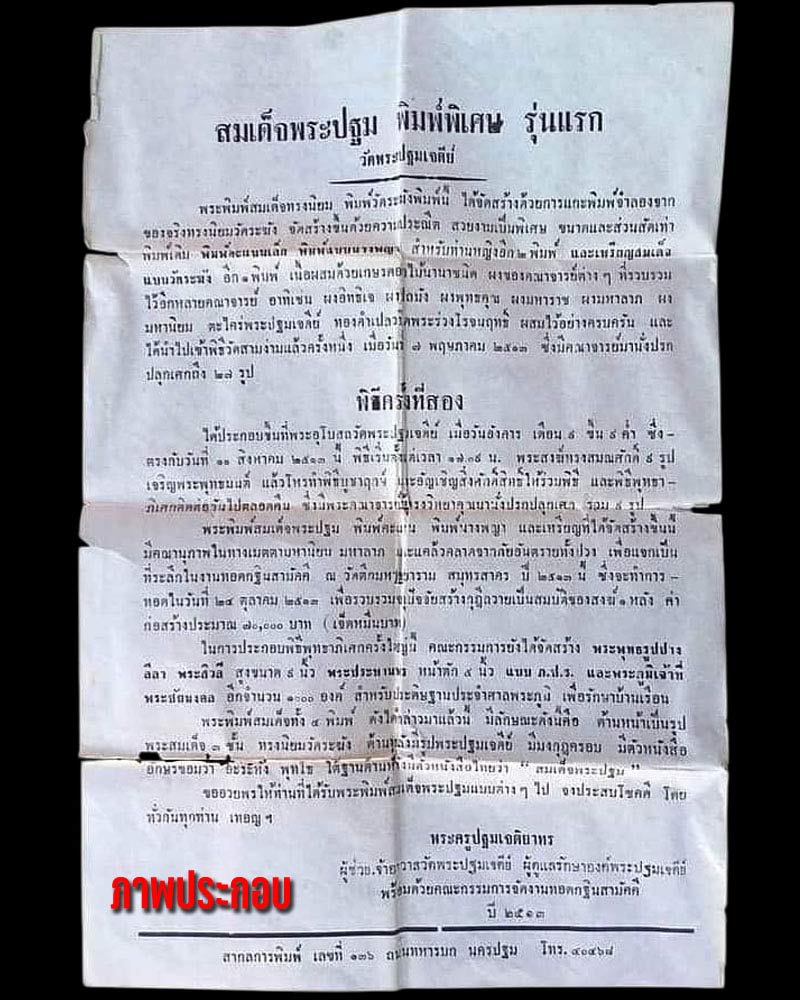 สมเด็จพระปฐม พิมพ์พิเศษ รุ่นแรก
วัดพระปฐมเจดีย์
พระพิมพ์สมเด็จทรงนิยม พิมพ์วัดระฆังพิมพ์นี้ ได้จัดสร้างด้วยการแกะพิมพ์จำลองจาก
ของจริงทรงนิยมวัดระฆัง จัดสร้างขึ้นด้วยความประณีต สวยงามเป็นพิเศษ ขนาดและส่วนสัดเท่า
พิมพ์เดิม พิมพ์คะแนนเล็ก พิมพ์แบบนางพญา สำหรับท่านหญิงอีก ๒ พิมพ์ และเหรียญสมเด็จ
แบบวัดระฆัง อีก ๑ พิมพ์ เนื้อผสมด้วยเกษรดอกไม้นานาชนิด ผงของคณาจารย์ต่างๆ ที่รวบรวม
ไว้อีกหลายคณาจารย์ อาทิเช่น ผงอิทธิเจ ผงปถมัง ผงพุทธคุณ ผงมหาราช ผงมหาลาภ ผง
มหานิยม ตะไคร่พระปฐมเจดีย์ ทองคำเปลวปิดพระร่วงโรจนฤทธิ์ ผสมไว้อย่างครบครัน และ
ได้นำไปเข้าพิธีวัดสามง่ามแล้วครั้งหนึ่ง เมื่อวันที่ ๗ พฤษภาคม ๒๕๑๓ ซึ่งมีคณาจารย์มานั่งปรก
ปลุกเศกถึง ๒๘ รูป
พิธีครั้งที่สอง
ได้ประกอบขึ้นที่พระอุโบสถวัดพระปฐมเจดีย์ เมื่อวันอังคาร เดือน ๙ ขึ้น ๙ ค่ำ ซึ่ง -
ตรงกับวันที่ ๑๑ สิงหาคม ๒๕๑๓ นี้ พิธีเริ่มตั้งแต่เวลา ๑๗.๐๙ น. พระสงฆ์ทรงสมณศักดิ์ ๙ รูป
เจริญพระพุทธมนต์ แล้วโหรทำพิธีบูชาฤกษ์ และอัญเชิญสิ่งศักดิ์สิทธิ์ให้ร่วมพิธี และพิธีพุทธา -
ภิเศกติดต่อกันไปตลอดคืน ซึ่งมีพระคณาจารย์ผู้ทรงวิทยาคุณมานั่งปรกปลุกเศก รวม ๙ รูป
พระพิมพ์สมเด็จพระปฐม พิมพ์คะแนน พิมพ์นางพญา และเหรียญที่ได้จัดสร้างขึ้นนี้
มีคุณานุภาพในทางเมตตามหานิยม มหาลาภ และแคล้วคลาดจากภัยอันตรายทั้งปวง เพื่อแจกเป็น
ที่ระลึกในงานทอดกฐินสามัคคี ณ วัดตึกมหาชยาราม สมุทรสาคร ปี ๒๕๑๓ นี้ ซึ่งจะทำการ -
ทอดในวันที่ ๒๔ ตุลาคม ๒๕๑๓ เพื่อรวบรวมปัจจัยสร้างกุฏิถวายเป็นสมบัติของสงฆ์ ๑ หลัง ค่า
ก่อสร้างประมาณ ๗๐,๐๐๐ บาท (เจ็ดหมื่นบาท)
ในการประกอบพิธีพุทธาภิเศกครั้งใหญ่นี้ คณะกรรมการยังได้จัดสร้าง พระพุทธรูปปาง
ลีลา พระสิวลี สูงขนาด ๙ นิ้ว พระประทานพร หน้าตัก ๕ นิ้ว แบบ ภ.ป.ร. และพระภูมิเจ้าที่
พระชัยมงคล อีกจำนวน ๑๐๐๐ องค์ สำหรับประดิษฐานประจำศาลพระภูมิ เพื่อรักษาบ้านเรือน
พระพิมพ์สมเด็จทั้ง ๔ พิมพ์ ดังได้กล่าวมาแล้วนี้ มีลักษณะดังนี้คือ ด้านหน้าเป็นรูป
พระสมเด็จ ๓ ชั้น ทรงนิยมวัดระฆัง ด้านหลังมีรูปพระปฐมเจดีย์ มีมงกุฎครอบ มีตัวหนังสือ
อักษรขอมว่า อะระหัง พุทโธ ใต้ฐานด้านหลังมีตัวหนังสือไทยว่า “ สมเด็จพระปฐม ”
ขออวยพรให้ท่านที่ได้รับพระพิมพ์สมเด็จพระปฐมแบบต่างๆ ไป จงประสบโชคดี โดย
ทั่วกันทุกท่าน เทอญฯ
พระครูปฐมเจติยาทร
ผู้ช่วย.จ้าอาวาสวัดพระปฐมเจดีย์ ผู้ดูแลรักษาองค์พระปฐมเจดีย์
พร้อมด้วยคณะกรรมการจัดงานทอดกฐินสามัคคี
ปี ๒๕๑๓
ภาพประกอบ
สากลการพิมพ์ เลขที่ ๑๓๖ ถนนทหารบก นครปฐม โทร. ๔๐๔๖๘